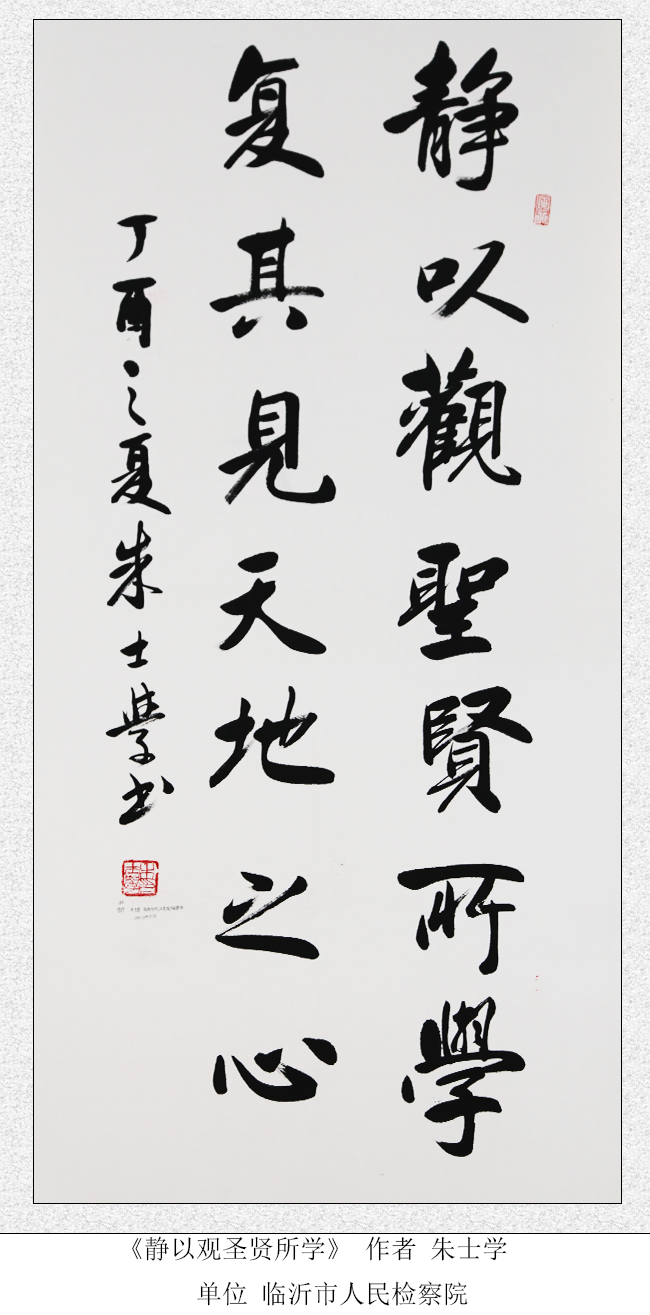 静以觀聖賢所學
复其見天地之心
丁酉之夏朱士學书
《静以观圣贤所学》 作者 朱士学
单位 临沂市人民检察院